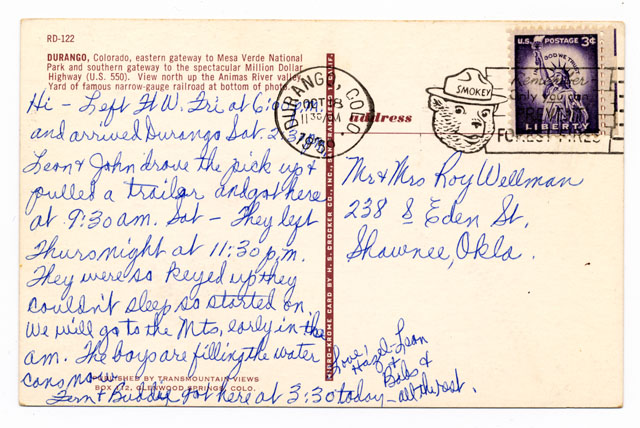 RD-122
DURANGO, Colorado, eastern gateway to Mesa Verde National
Park and southern gateway to the spectacular Million Dollar
Highway (U.S. 550). View north up the Animas River valley.
Yard of famous narrow-gauge railroad at bottom of photo.
Hi - Left Ft W. Fri at 6:00 P.M.
and arrived Durango Sat. 2:30
Leon & John drove the pick up &
pulled a trailor and got here
at 9:30 am. Sat - They left
Thurs night at 11:30 p.m.
They were so keyed up they
couldn't sleep so started on.
We will go to the Mts, early in the
am. The boys are filling the water
cans now
Fern & Buddie got here at 3:30 today -
Love!
Hazel-Leon
Bobs &
all the rest.
PUBLISHED BY TRANSMOUNTAIN VIEWS
BOX 412, GLENWOOD SPRINGS, COLO.
KORO-KROME CARD BY H. S. CROCKER CO., INC.
DURANGO, COLO
OCT 18
11 30 AM
1960
address
SMOKEY
Remember
Only You can
PREVENT
FOREST FIRES
U.S. POSTAGE 3¢
IN GOD WE TRUST
LIBERTY
Mr & Mrs Roy Wellman
238 S Eden St,
Shawnee, Okla.